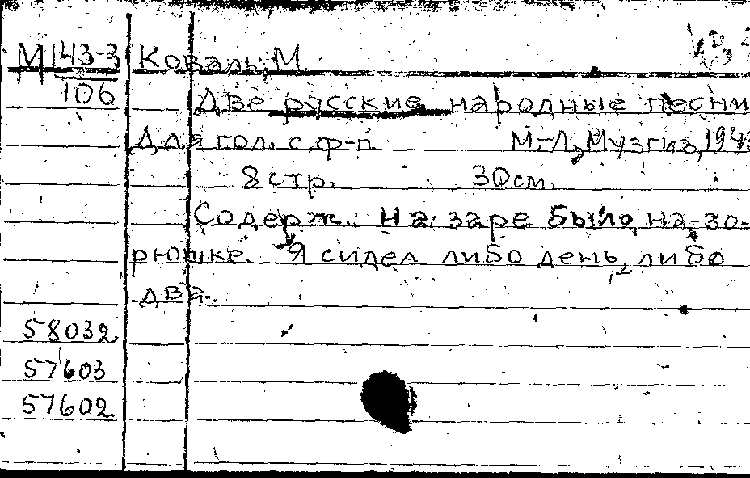 М 43-3 Коваль, М
106 Две русские народные песни
Для гол. с ф-п. М-Л, Музгиз, 1943
8 стр. 30 см.
Содерж.: На заре было, на зо-
рюшке. Я сидел либо день, либо
два.
58032
57603
57602